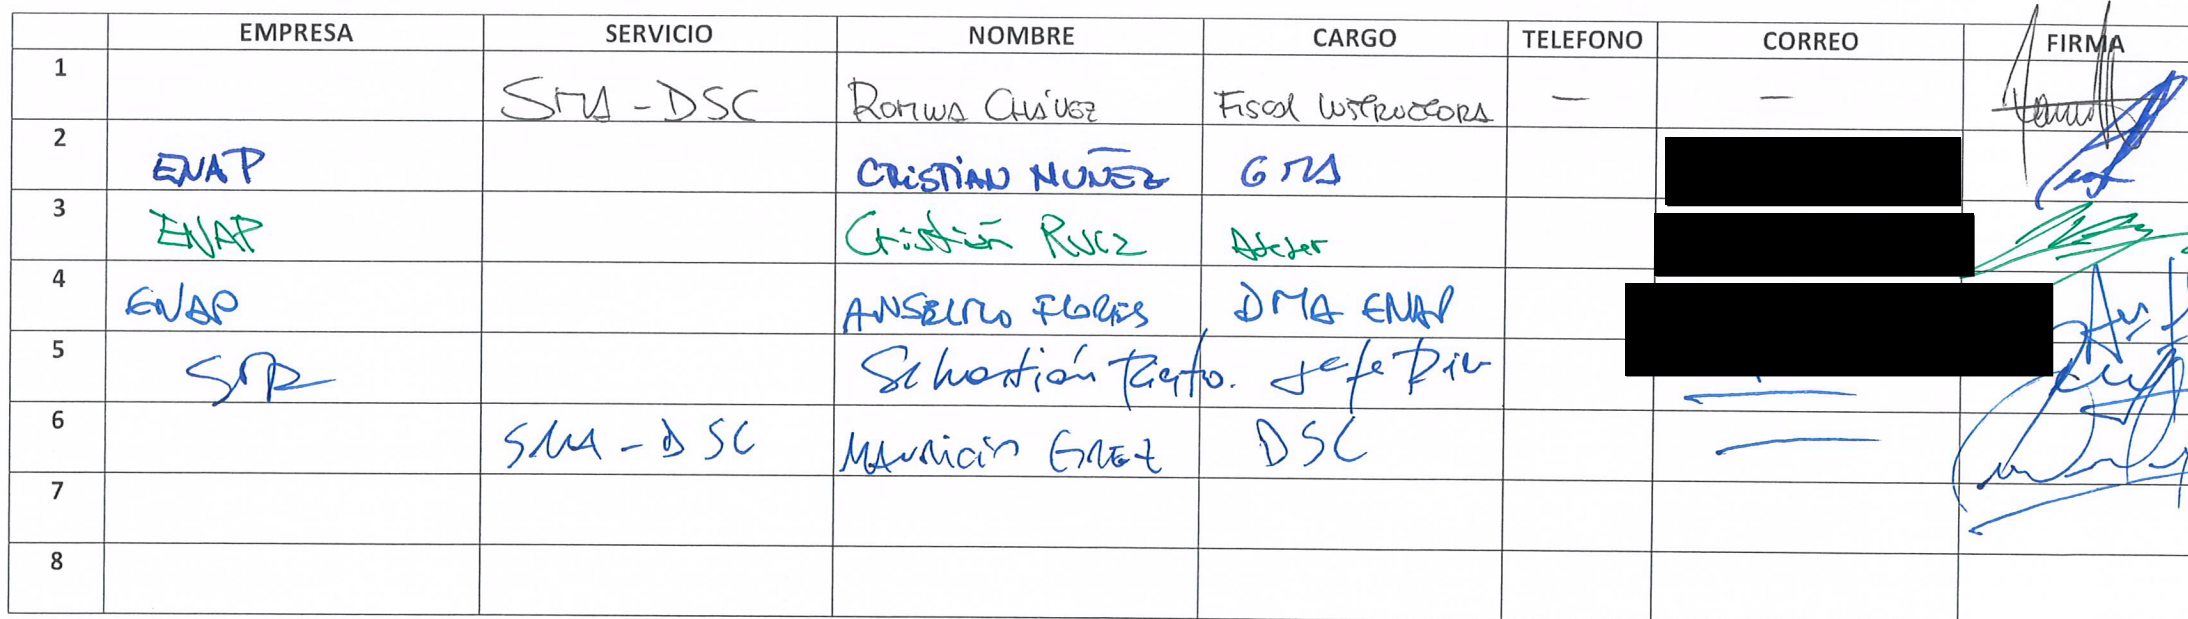 EMPRESA SERVICIO NOMBRE CARGO TELEFONO CORREO FIRMA
1 SMA - DSC ROMINA CHÁVEZ FISCAL INSTRUCTORA — —
2 ENAP CRISTIAN NUÑEZ GMA
3 ENAP Cristián Ruiz Asesor
4 ENAP ANSELMO FLORES DMA ENAP
5 SMA Sebastián Jefe Div
6 SMA - DSC MAURICIO GREZ DSC
7
8